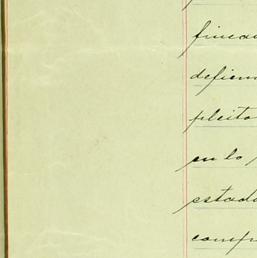 fincas
defien
pleito
en lo
estad
comp